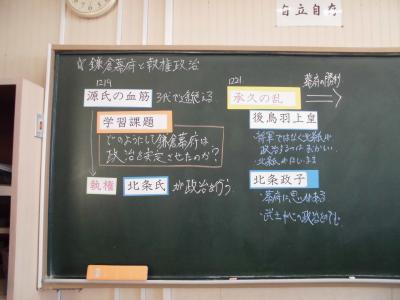 自立自存
☆鎌倉幕府と執権政治
1219
源氏の血筋 3代で途絶える
学習課題
どのようにして鎌倉幕府は
政治を安定させたのか?
執権 北条氏 が政治を行う
1221
承久の乱
幕府の勝利
後鳥羽上皇
・将軍ではなく北条が
政治するのはおかしい
北条政子
・幕府に恩がある